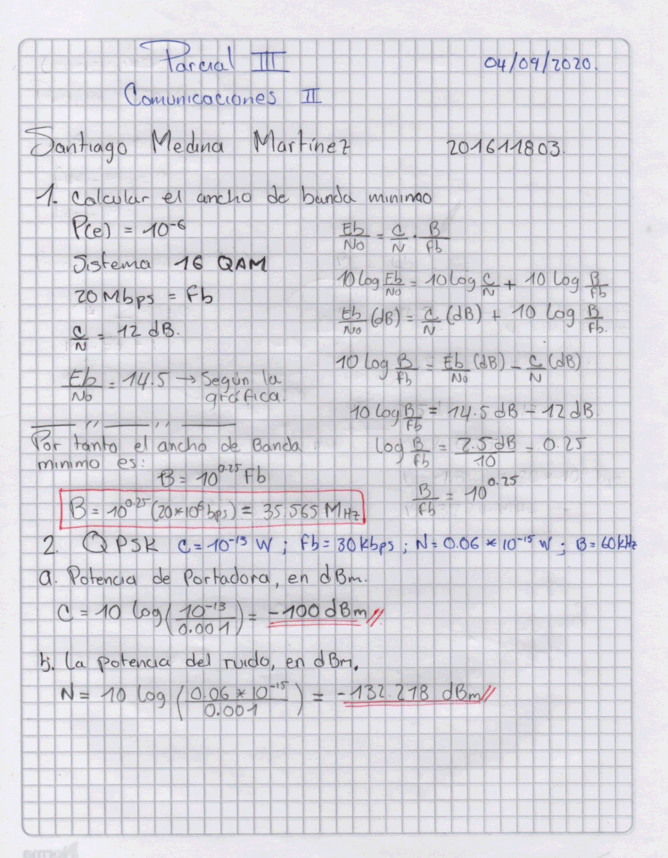 Parcial III
04/09/2020.
Comunicaciones II
Santiago Medina Martínez 201611803.
1. Calcular el ancho de banda minimo
P(e) = 10^-6
Sistema 16 QAM
20 Mbps = Fb
C/N = 12 dB.
Eb/No = 14.5 → Según la gráfica.
Eb/No = C/N · B/fb
10 log Eb/No = 10 log C/N + 10 log B/fb
Eb/No (dB) = C/N (dB) + 10 log B/fb.
10 log B/fb = Eb/No (dB) - C/N (dB)
10 log B/fb = 14.5 dB - 12 dB
log B/fb = 2.5 dB/10 = 0.25
B/fb = 10^0.25
Por tanto el ancho de Banda
minimo es:
B = 10^0.25 Fb
B = 10^0.25 (20*10^6 bps) = 35.565 MHz
2. QPSK C = 10^-13 W ; Fb = 30 kbps ; N = 0.06 * 10^-15 W ; B = 60 kHz
a. Potencia de Portadora, en dBm.
C = 10 log (10^-13/0.001) = -100 dBm //
b. La potencia del ruido, en dBm.
N = 10 log (0.06 * 10^-15/0.001) = -132.218 dBm //
Norma